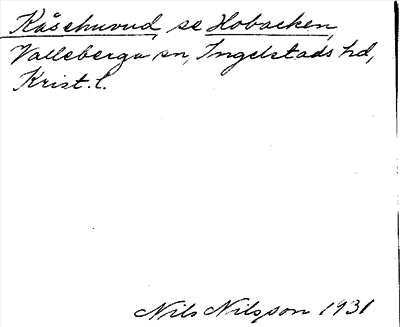 Kåsehuvud, se Hobacken,
Valleberga sn, Ingelstads hd,
Krist. l.
Nils Nilsson 1931